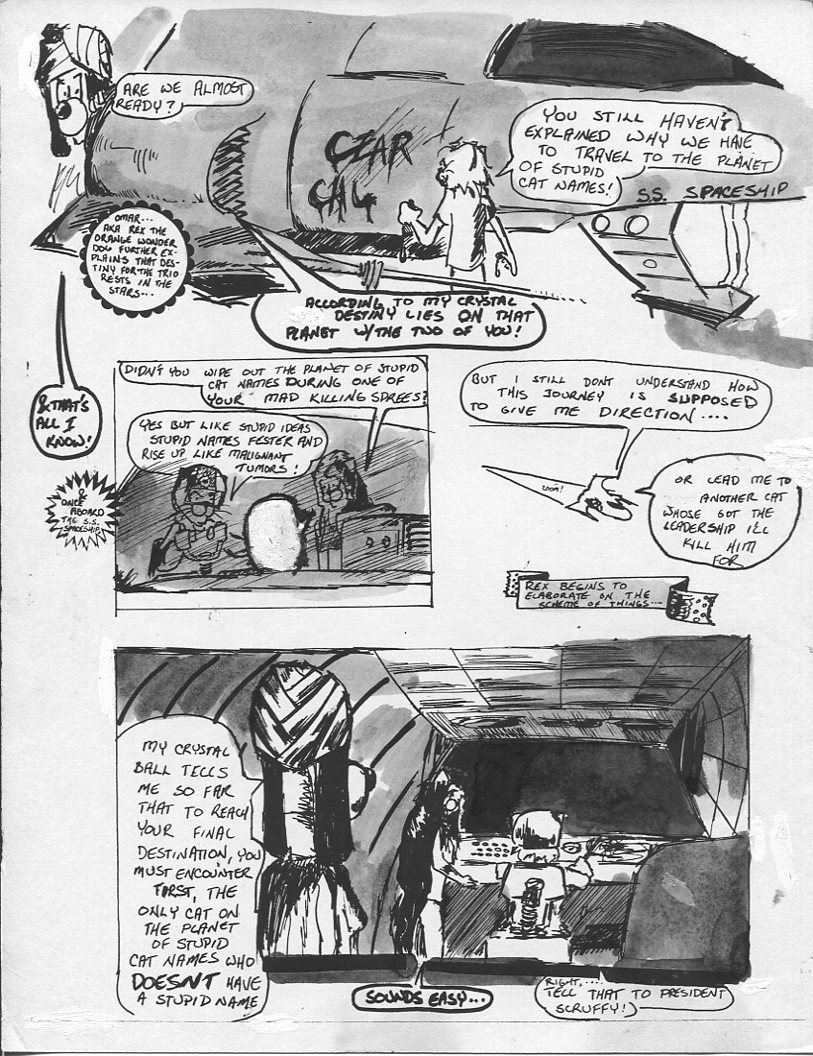 ARE WE ALMOST
READY?
CZAR
CAL
YOU STILL HAVEN'T
EXPLAINED WHY WE HAVE
TO TRAVEL TO THE PLANET
OF STUPID
CAT NAMES!
S.S. SPACESHIP
OMAR...
AKA REX THE
ORANGE WONDER
DOG FURTHER EX-
PLAINS THAT DES-
TINY FOR THE TRIO
RESTS IN THE
STARS...
ACCORDING TO MY CRYSTAL
DESTINY LIES ON THAT
PLANET W/THE TWO OF YOU!
& THAT'S
ALL I
KNOW!
&
ONCE
ABOARD
THE S.S.
SPACESHIP
DIDN'T YOU WIPE OUT THE PLANET OF STUPID
CAT NAMES DURING ONE OF
YOUR MAD KILLING SPREES?
YES BUT LIKE STUPID IDEAS
STUPID NAMES FESTER AND
RISE UP LIKE MALIGNANT
TUMORS!
BUT I STILL DONT UNDERSTAND HOW
THIS JOURNEY IS SUPPOSED
TO GIVE ME DIRECTION....
ZOOM!
OR LEAD ME TO
ANOTHER CAT
WHOSE GOT THE
LEADERSHIP I'LL
KILL HIM
FOR
REX BEGINS TO
ELABORATE ON THE
SCHEME OF THINGS...
MY CRYSTAL
BALL TELLS
ME SO FAR
THAT TO REACH
YOUR FINAL
DESTINATION, YOU
MUST ENCOUNTER
FIRST, THE
ONLY CAT ON
THE PLANET
OF STUPID
CAT NAMES WHO
DOESN'T HAVE
A STUPID NAME
SOUNDS EASY...
RIGHT,....
TELL THAT TO PRESIDENT
SCRUFFY!